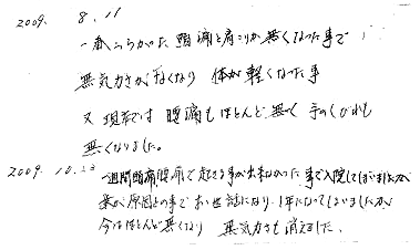 2009. 8. 11
一番つらかった 頭痛と肩こりが無くなった事で
無気力さがなくなり 体が軽くなった事
又 現在では 腰痛もほとんど無く 手のしびれも
無くなりました。
2009. 10. 23 一週間頭痛腰痛で起きる事が出来なかった事で入院してしまいましたが
薬が原因との事で お世話になり 1年になってしまいましたが
今はほとんど無くなり 無気力さも消えました。